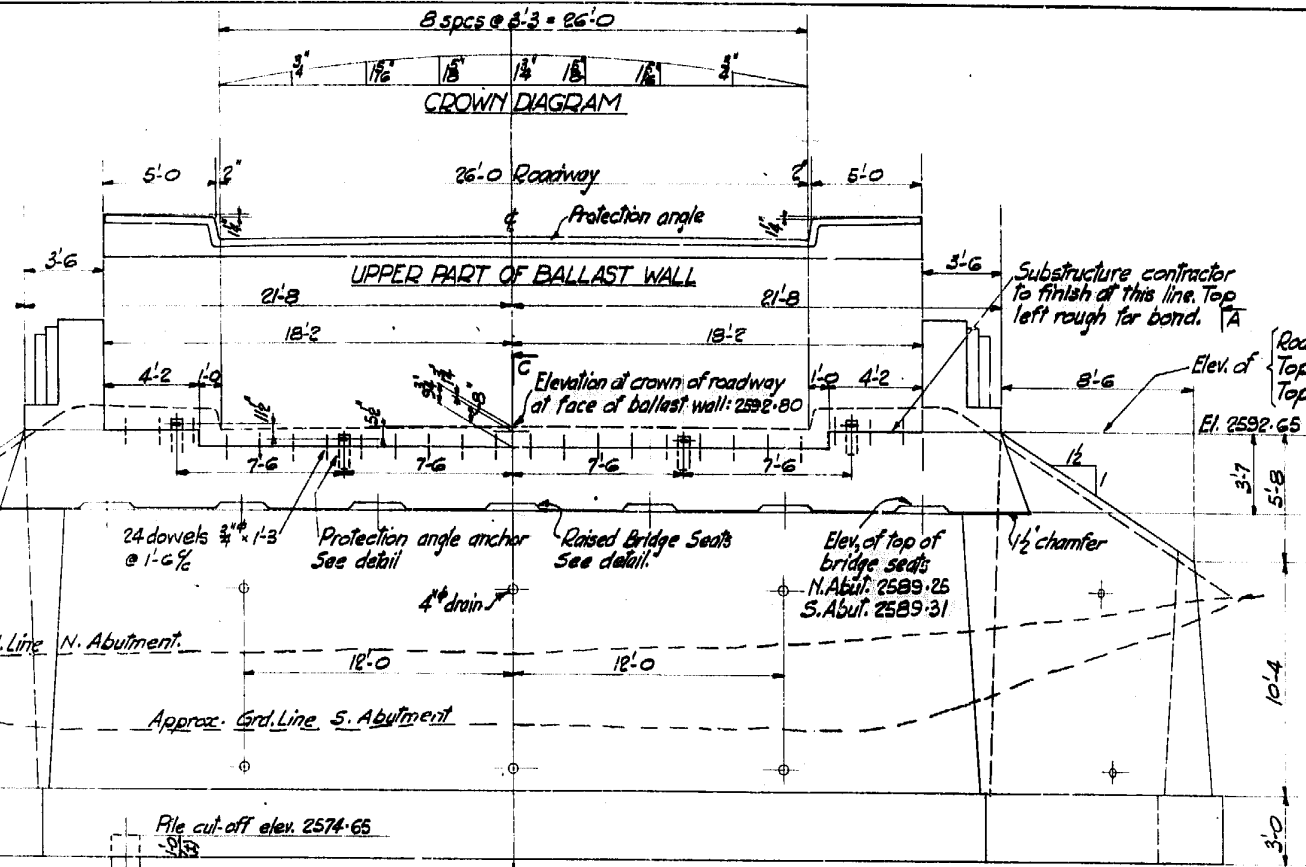 8 spcs @ 3'-3 = 26'-0
3/4" 1 5/16" 1 5/8" 1 3/4" 1 5/8" 1 5/16" 3/4"
CROWN DIAGRAM
5'-0 2" 26'-0 Roadway 2" 5'-0
Protection angle
1/4" 1/4"
UPPER PART OF BALLAST WALL
3'-6 3'-6
21'-8 21'-8
18'-2 18'-2
Substructure contractor
to finish at this line. Top
left rough for bond. A
4'-2 1'-0 1'-0 4'-2
C
Elevation at crown of roadway
at face of ballast wall: 2592.80
8"
11½" 5½"
8'-6
Elev. of
Top
Top
El. 2592.65
7'-6 7'-6 7'-6 7'-6
1½
1
3'-7 5'-8
24 dowels ¾"φ x 1'-3
@ 1'-6 %
Protection angle anchor
See detail
Raised Bridge Seats
See detail.
Elev. of top of
bridge seats
N. Abut. 2589.25
S. Abut. 2589.31
1½" chamfer
4"φ drain
Line N. Abutment.
12'-0 12'-0
Approx. Grd. Line S. Abutment
10'-4
Pile cut-off elev. 2574.65
1'-0
3'-0